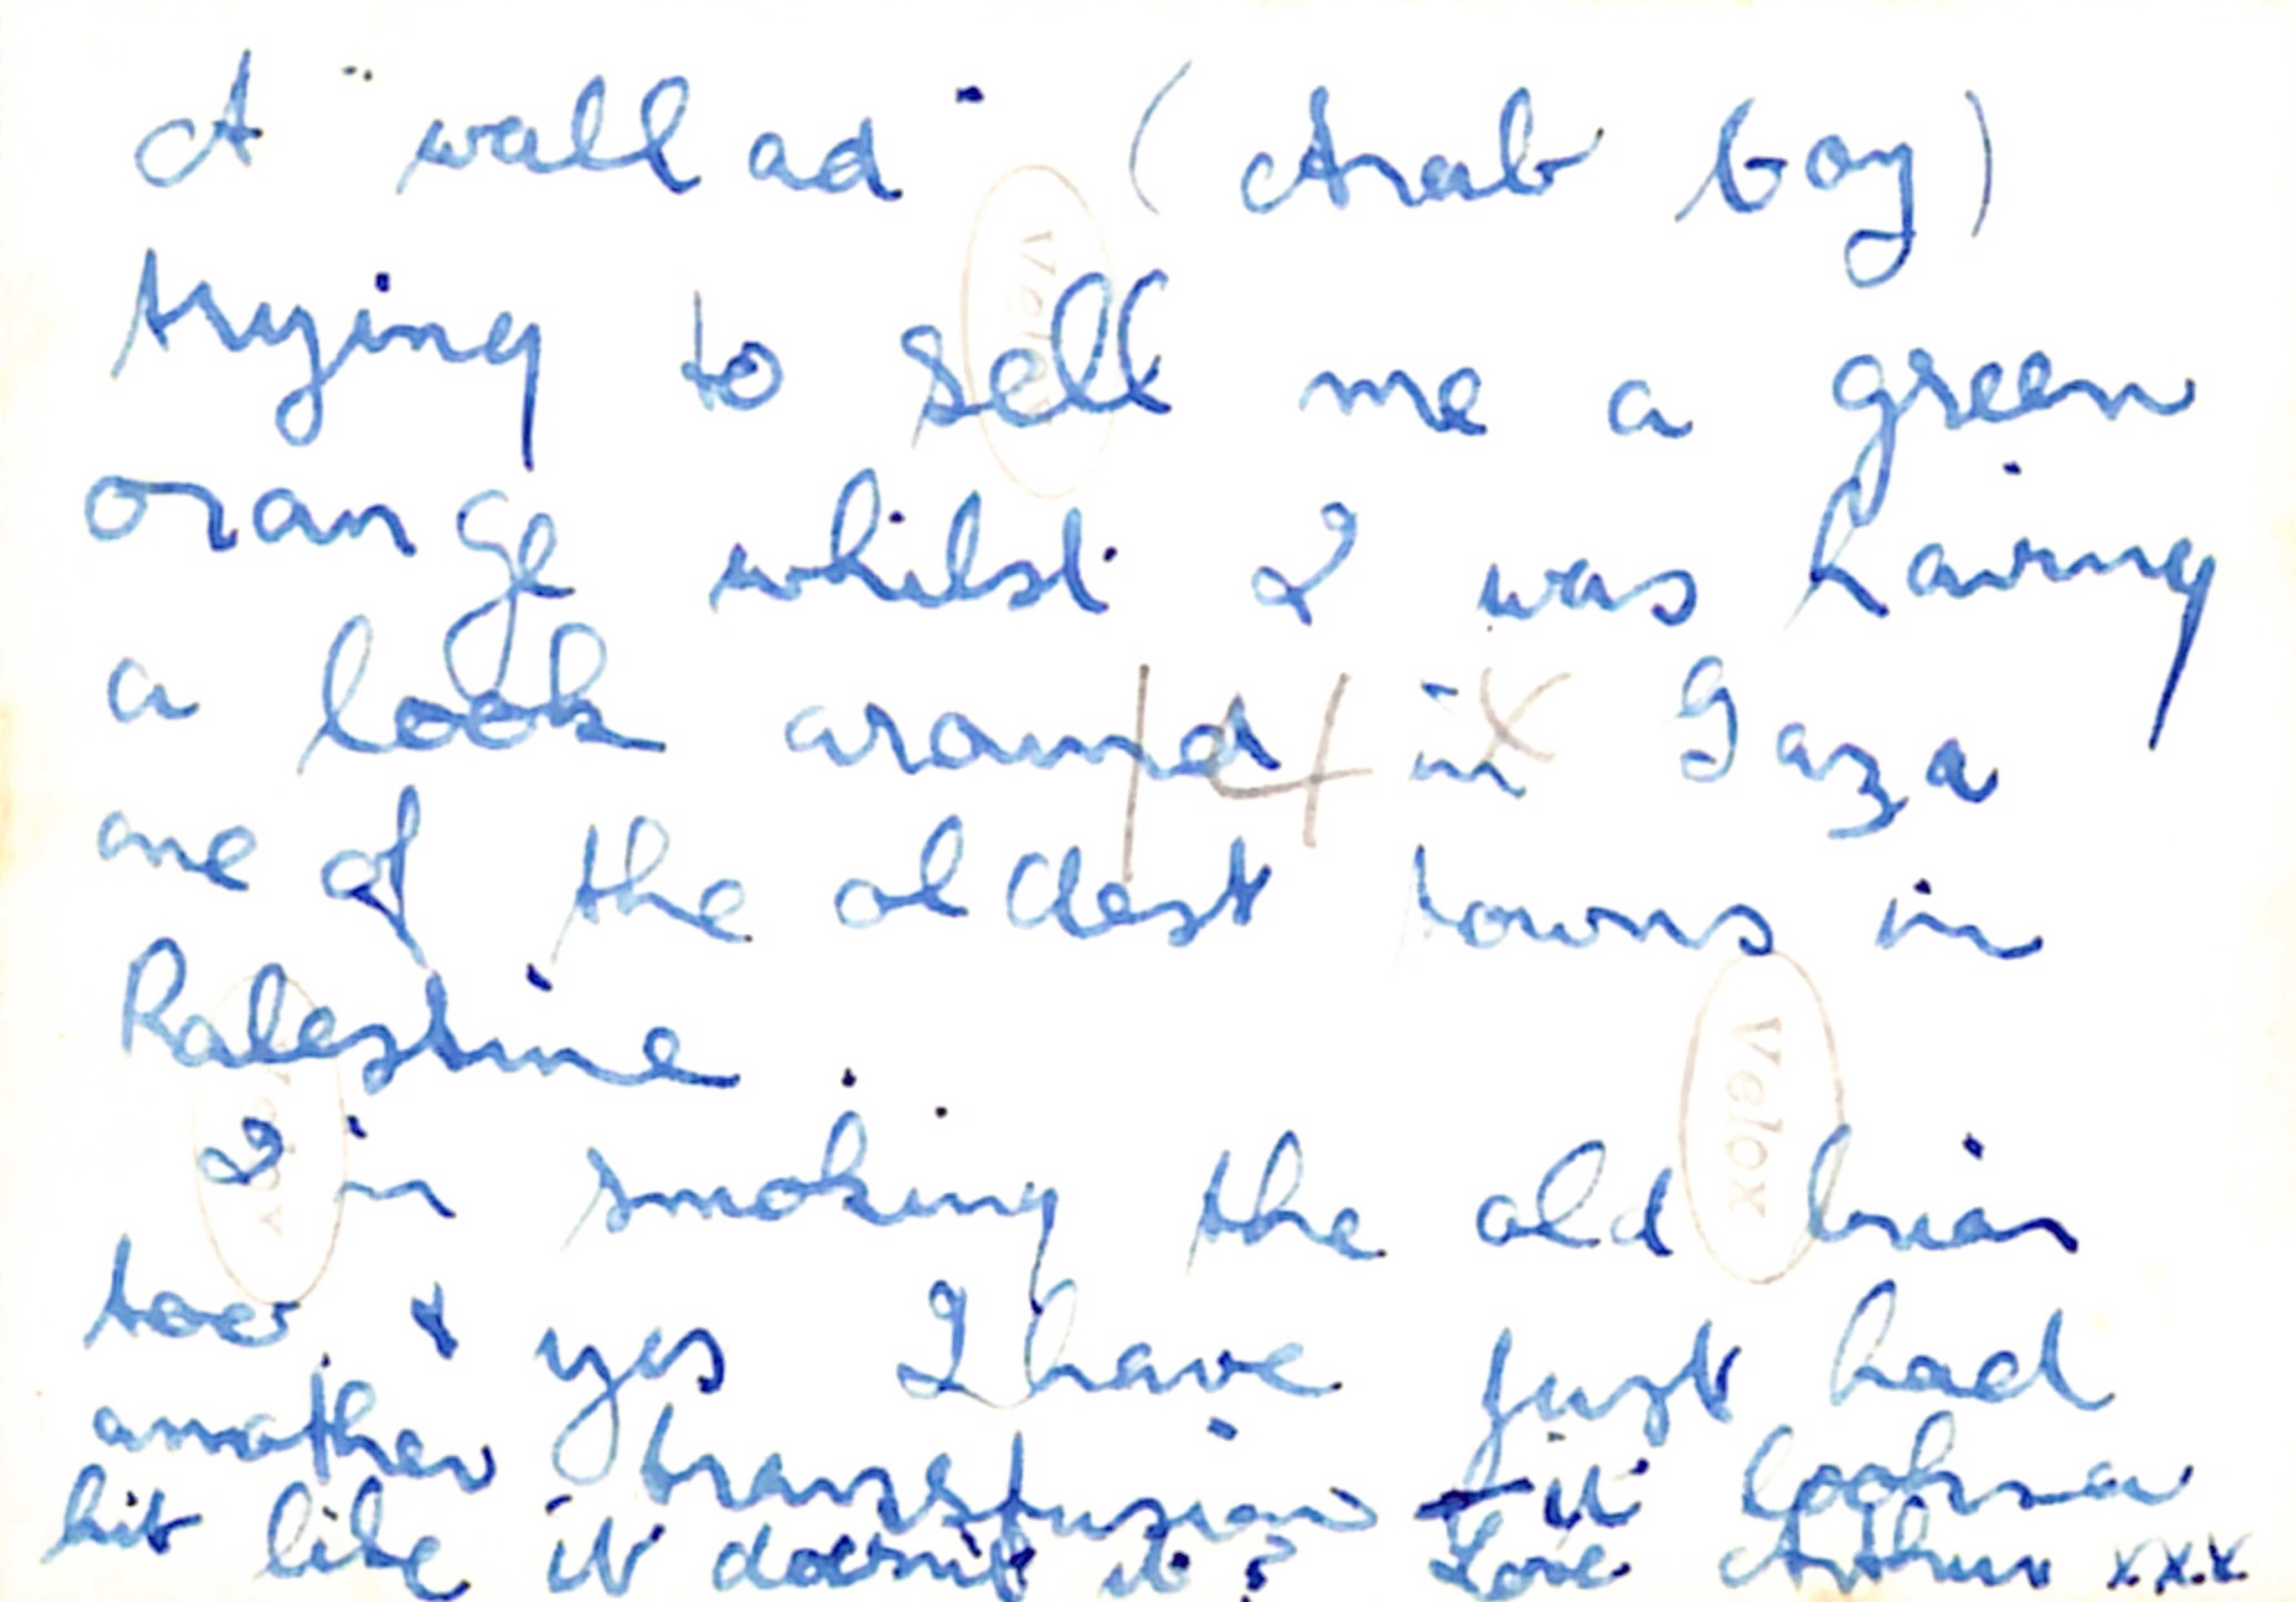 A "wallad" (Arab boy)
trying to sell me a green
orange whilst I was having
a look around in Gaza
one of the oldest towns in
Palestine.
I'm smoking the old briar
too & yes I have just had
another transfusion - it looks a
bit like it doesn't it? Love Arthur xxx
14 X
Velox
Velox
Velox